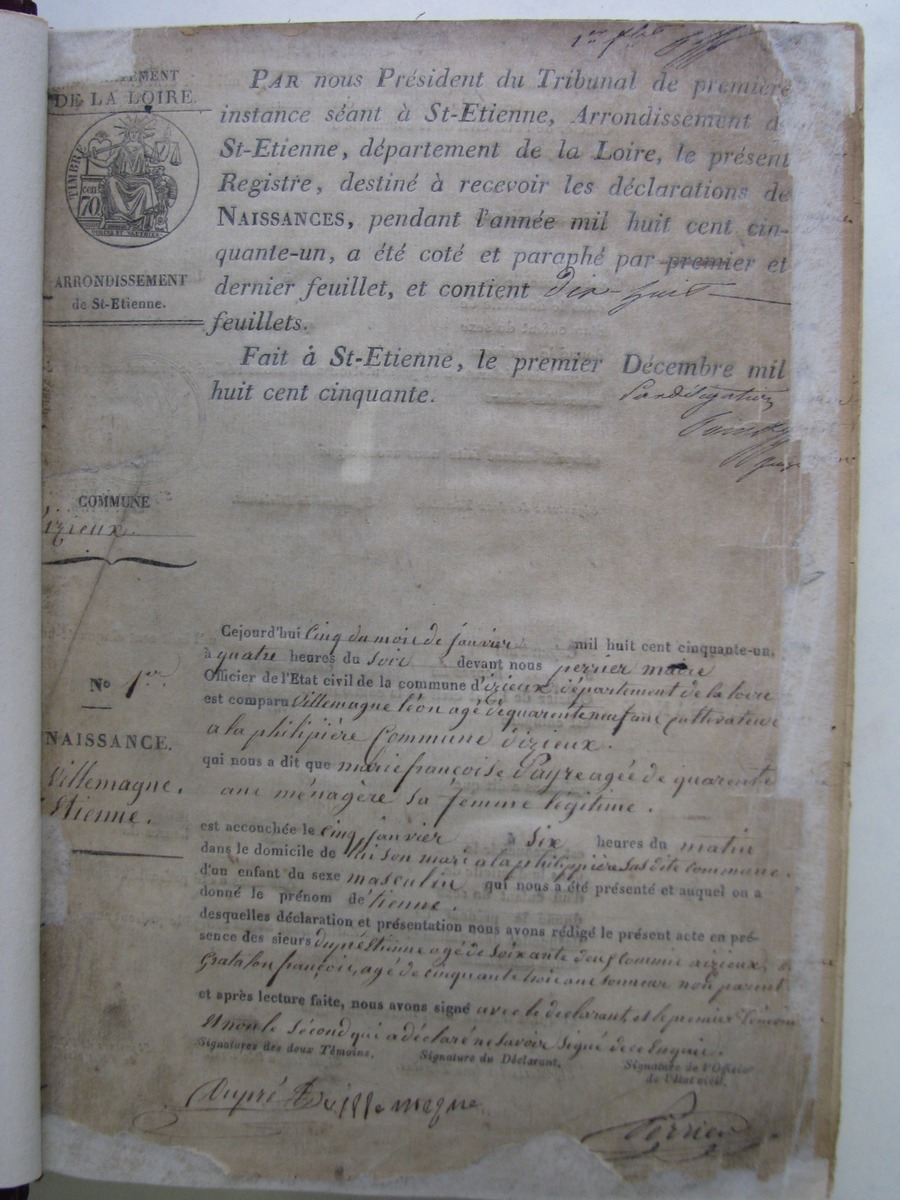 DE LA LOIRE.
TIMBRE
cent 70
ARRONDISSEMENT
de St-Etienne.
COMMUNE
izieux
PAR nous Président du Tribunal de première
instance séant à St-Etienne, Arrondissement de
St-Etienne, département de la Loire, le présent
Registre, destiné à recevoir les déclarations de
NAISSANCES, pendant l'année mil huit cent cin-
quante-un, a été coté et paraphé par premier et
dernier feuillet, et contient dix-huit
feuillets.
Fait à St-Etienne, le premier Décembre mil
huit cent cinquante.
Par délégation
No 1er
NAISSANCE.
Villemagne.
Etienne.
Cejourd'hui Cinq du mois de janvier mil huit cent cinquante-un,
à quatre heures du soir devant nous perrier maire
Officier de l'Etat civil de la commune d'izieux, département de la loire
est comparu Villemagne léon agé de quarente neuf ans cultivateur
a la philipière Commune d'izieux.
qui nous a dit que marie françoise Payre agée de quarente
ans ménagère sa femme légitime.
est accouchée le cinq janvier à Six heures du matin
dans le domicile de lui son mari a la philippière susdite Commune.
d'un enfant du sexe masculin qui nous a été présenté et auquel on a
donné le prénom de tienne.
desquelles déclaration et présentation nous avons rédigé le présent acte en pré-
sence des sieurs dupré Etienne agé de Soixante deux Commis dizieux, &
françois, agé de cinquante trois ans sonneur non parent
et après lecture faite, nous avons signé avec le déclarant et le premier témoin
Et non le Second qui a déclaré ne Savoir Signé de ce Enquis.
Signatures des deux Témoins. Signature du Déclarant. Signature de l'Officier
de l'état civil.
Dupré E villemagne Perrier